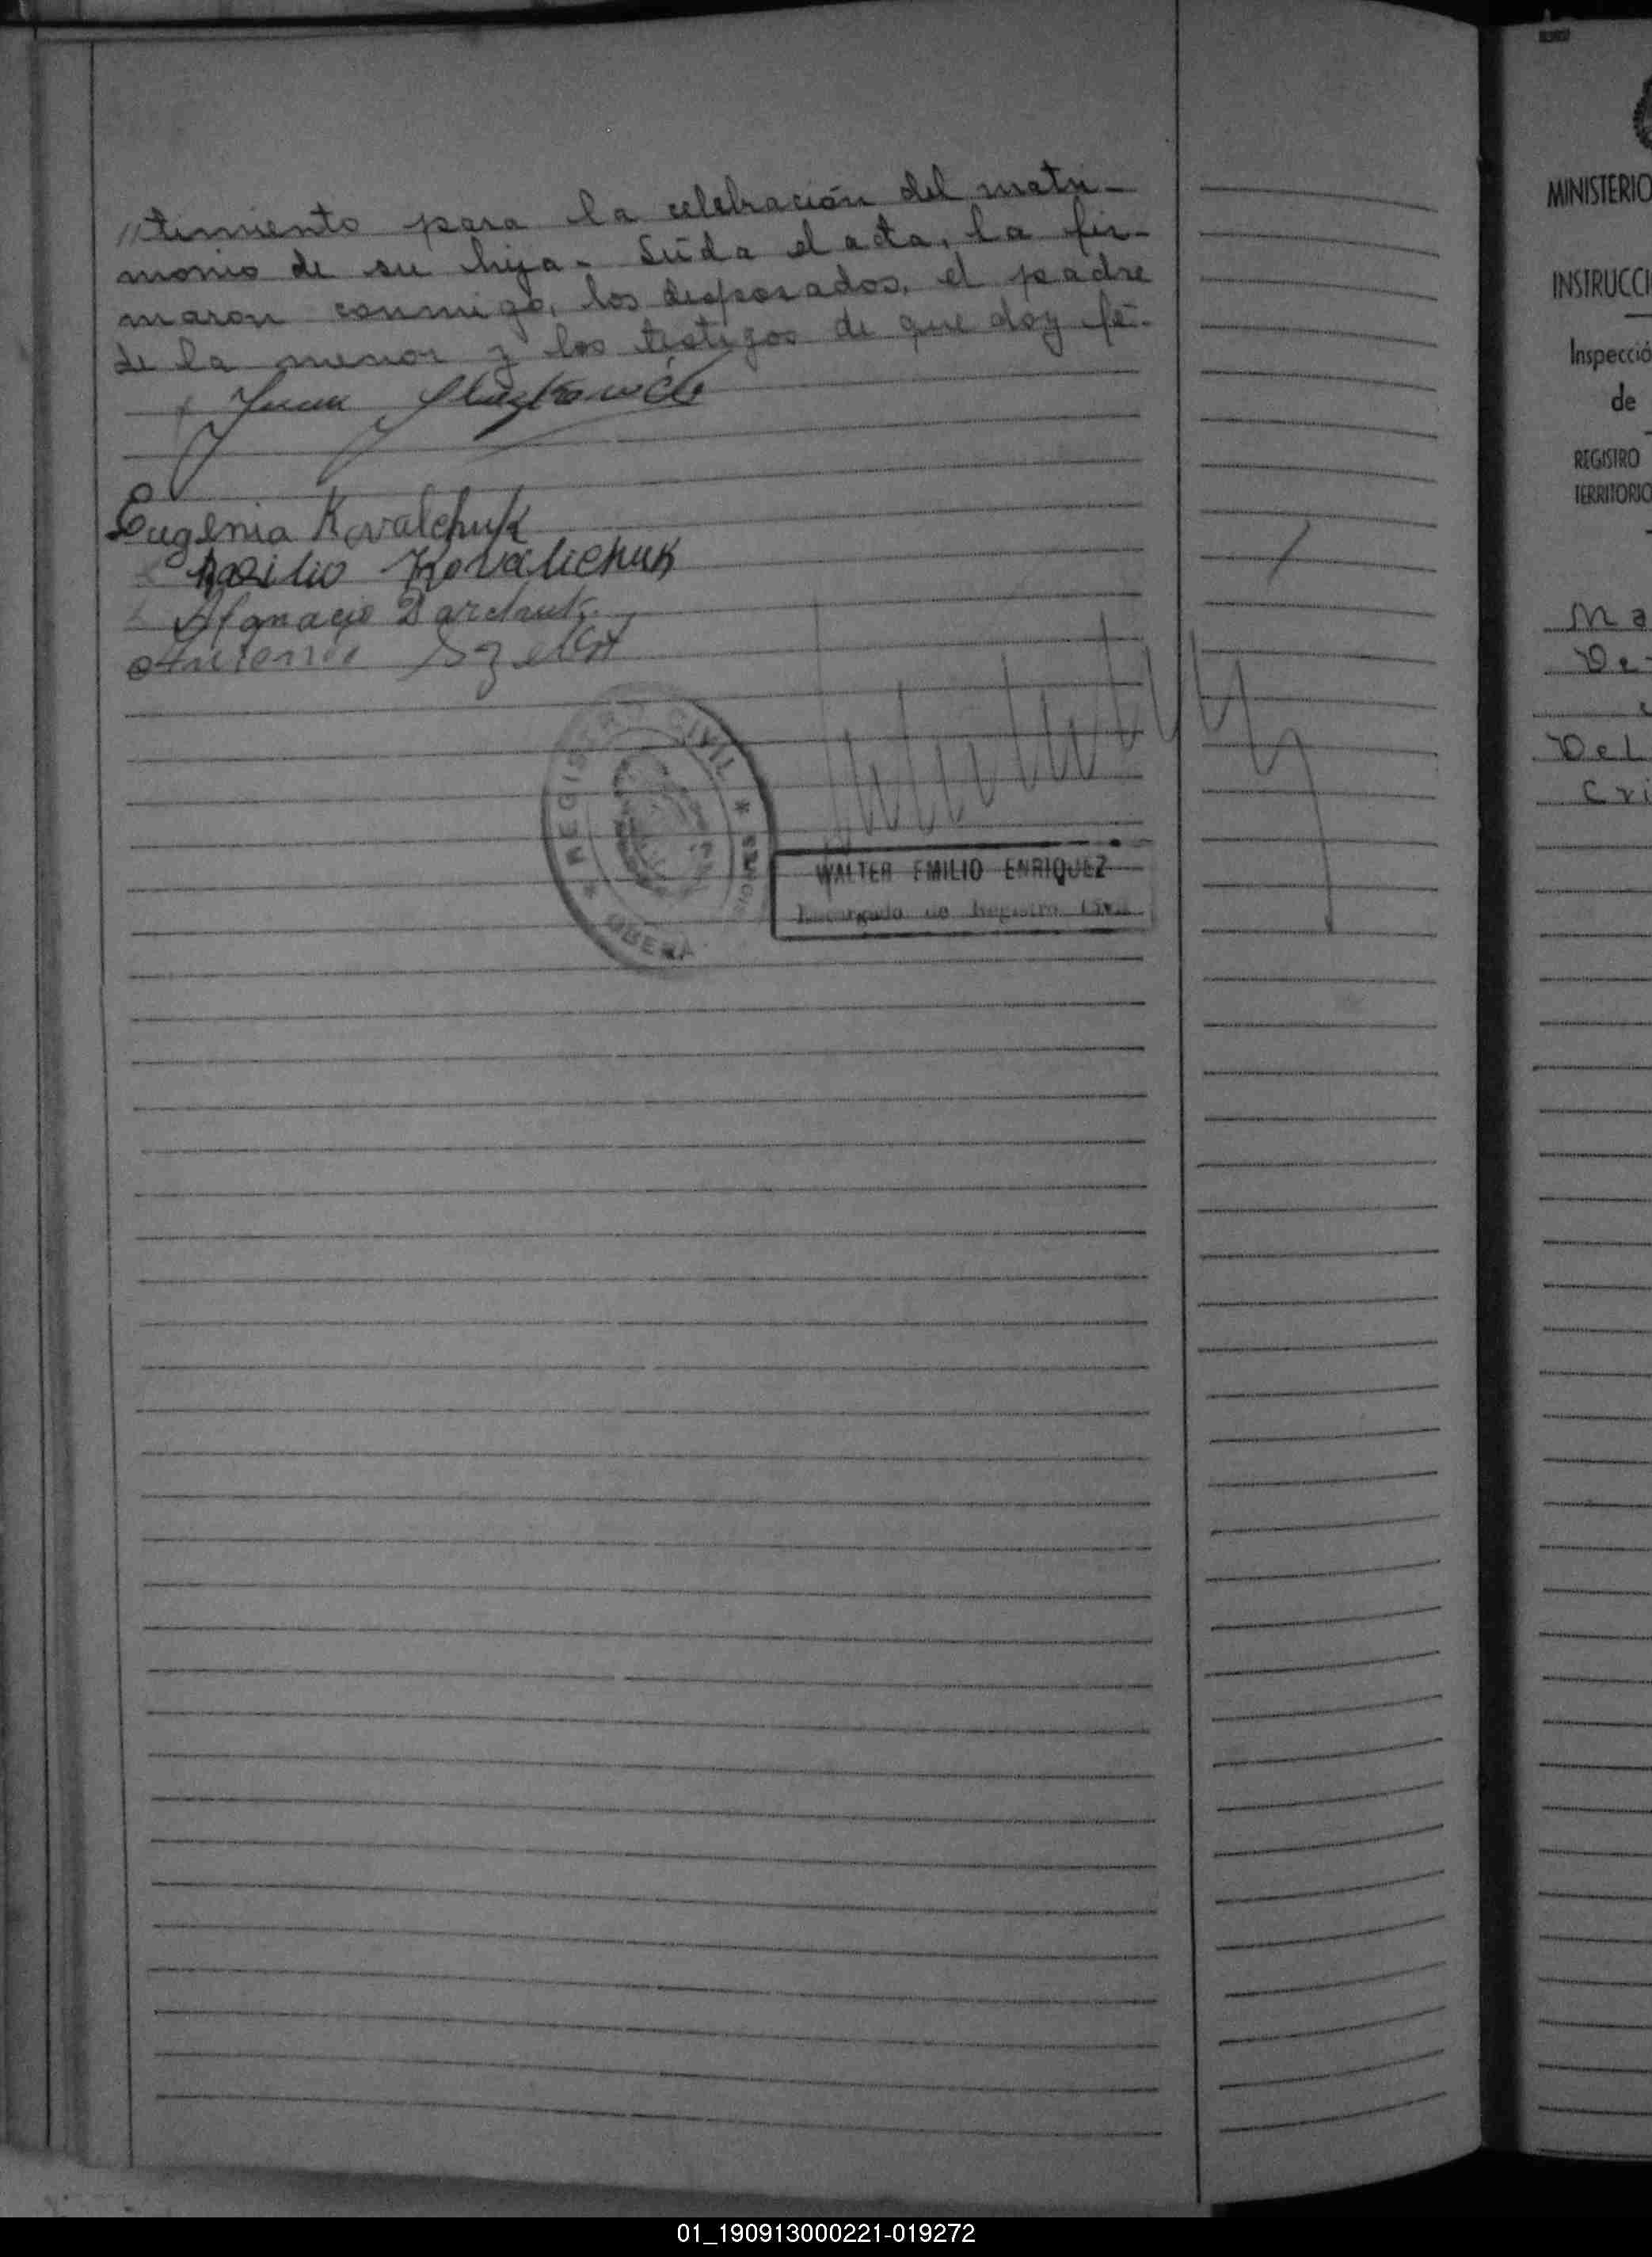 //timiento para la celebración del matri-
monio de su hija - Leída el acta, la fir-
maron conmigo, los desposados, el padre
de la menor y los testigos de que doy fé.-
Juan
Eugenia Kovalchuk
Basilio Kovalichuk
Afanacio
Antonio
REGISTRO CIVIL * MISIONES * OBERA
WALTER EMILIO ENRIQUEZ
Encargado de Registro Civil
MINISTERIO
INSTRUCCI
Inspecció
de
REGISTRO
TERRITORIO
Ma
De
Del
Cri
01_190913000221-019272